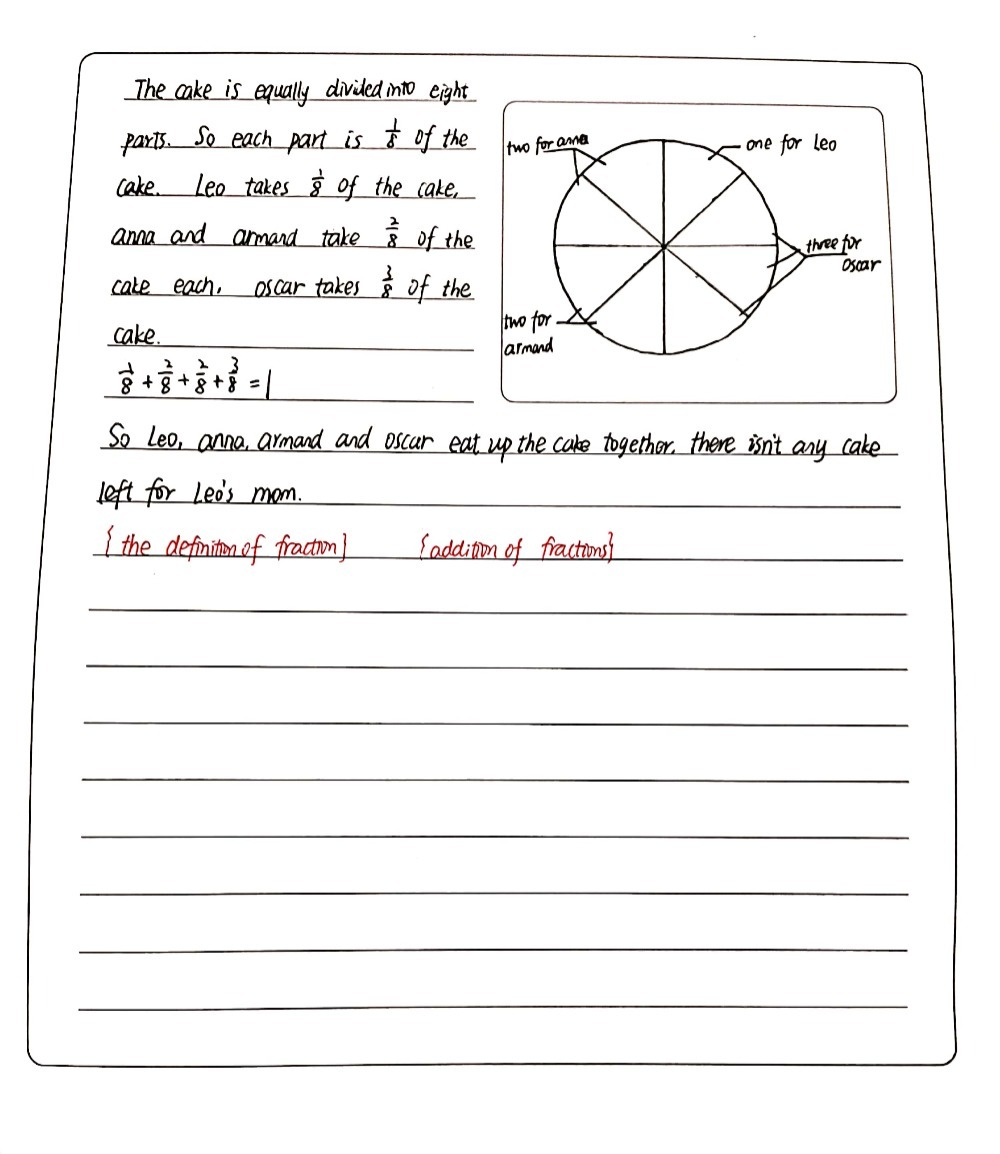 The cake is equally divided into eight
parts. So each part is 1/8 of the
cake. Leo takes 1/8 of the cake,
anna and armand take 2/8 of the
cake each. oscar takes 3/8 of the
cake.
1/8 + 2/8 + 2/8 + 3/8 = 1
two for anna
one for Leo
three for
oscar
two for
armand
So Leo, anna, armand and oscar eat up the cake together. there isn't any cake
left for Leo's mom.
{the definition of fraction} {addition of fractions}